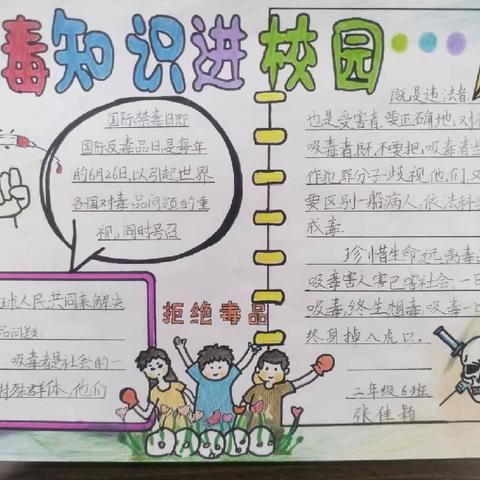 毒知识进校园
国际禁毒日即
国际反毒品日,是每年
的6月26日,以引起世界
各国对毒品问题的重
视,同时号召
球人民共同来解决
品问题.
吸毒者是社会的一
特殊群体,他们
拒绝毒品
既是违法者
也是受害者.要正确地,对待
吸毒者,既,不要把,吸毒者当
作犯罪分子歧视他们,又
要区别一般病人,依法科学
戒毒.
珍惜生命,远离毒品
吸毒害人害己害社会.一日
吸毒,终生想毒,吸毒一口
终身掉入虎口.
二年级6班
张佳颖